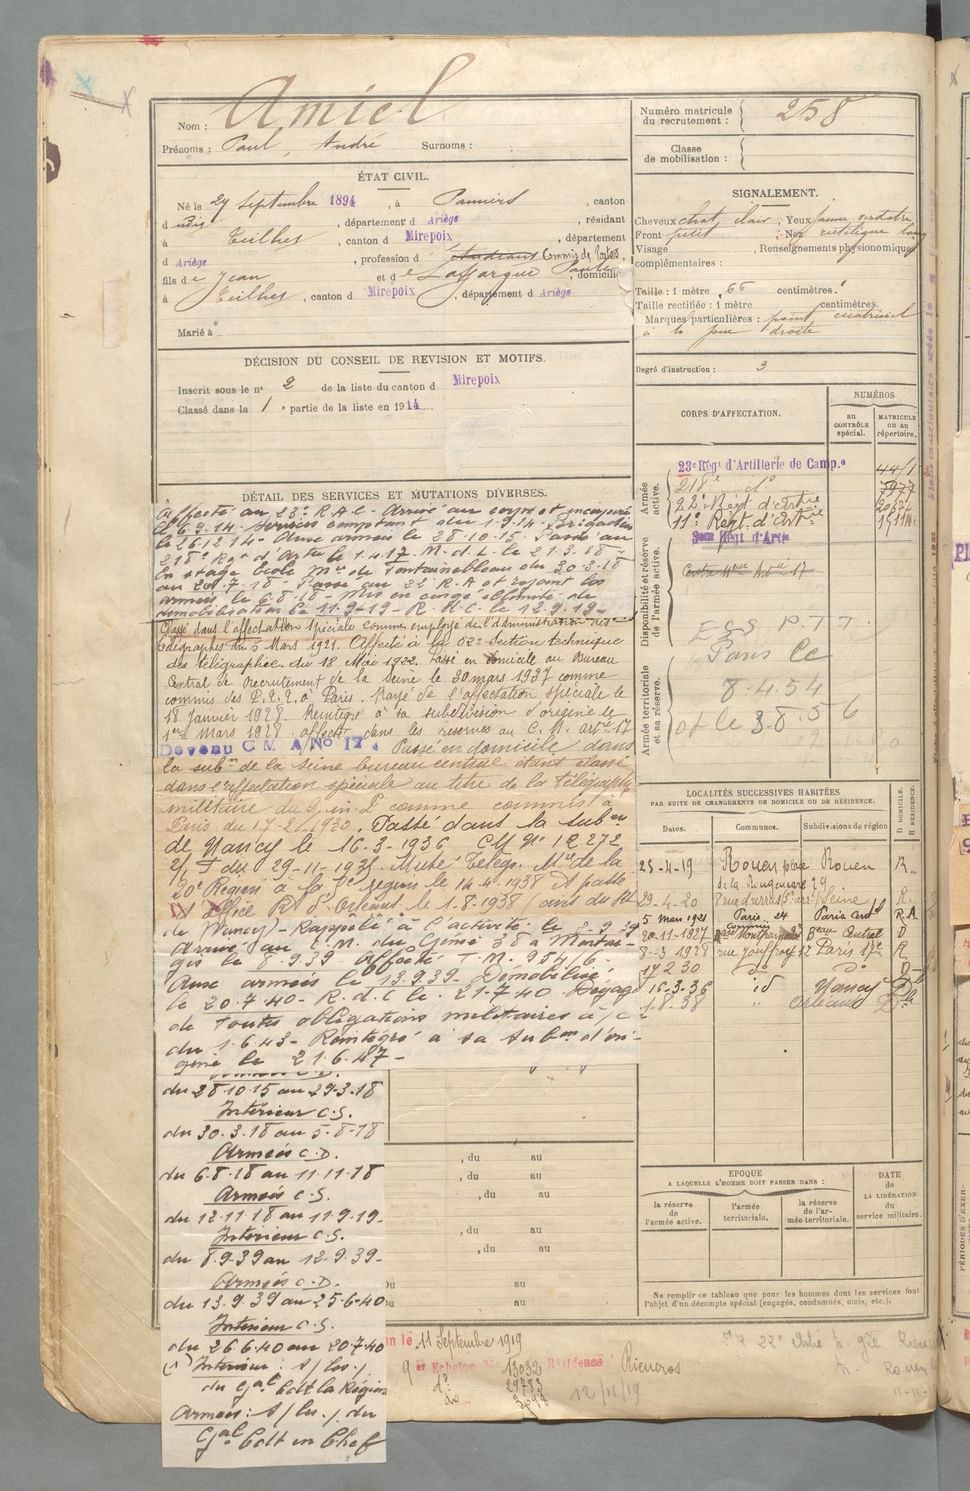 Nom : Amiel
Prénoms : Paul, André Surnoms :
ÉTAT CIVIL.
Né le 27 septembre 1894, à Pamiers, canton
d udit, département d Ariège, résidant
à Teilhet, canton d Mirepoix, département
d Ariège, profession d Etudiant Commis de Postes,
fils de Jean et de Laffargue Paule, domicilié
à Teilhet, canton d Mirepoix, département d Ariège
Marié à
DÉCISION DU CONSEIL DE REVISION ET MOTIFS.
Inscrit sous le nº 2 de la liste du canton d Mirepoix
Classé dans la 1e partie de la liste en 1914
DÉTAIL DES SERVICES ET MUTATIONS DIVERSES.
Affecté au 23e R.A.C - Arrivé au corps et incorporé
le 6.9.14 - Services comptant du 1.9.14 - Brigadier
le 26.12.14 - Aux armées le 28.10.15 - Passé au
218e Régt d'Artie le 1.4.17. M.d.L. le 21.3.18 -
En stage Ecole Mre de Fontainebleau du 30-3-18
au 20.7.18 - Passé au 22e R.A et rejoint les
armées le 6.8.18 - Mis en congé illimité de
démobilisation le 11-9-19 - R.d.C. le 12.9.19 -
Classé dans l'affectation spéciale comme employé de l'administration des
Télégraphes du 5 Mars 1921. Affecté à la 52e Section technique
des télégraphes. du 18 Mai 1922. Passé en domicile au Bureau
Central de Recrutement de la Seine le 30 mars 1937 comme
commis des P.T.T. à Paris. Rayé de l'affectation spéciale le
18 Janvier 1928. Réintégré à sa subdivision d'origine le
1er Mars 1928. affecté dans les réserves au C.M. artie 17
Devenu C M A No 17. Passé en domicile dans
la subon de la Seine bureau central étant classé
dans l'affectation spéciale au titre de la télégraphie
militaire du comme commis à
Paris du 17-2-1930. Passé dans la subon
de Nancy le 16-3-1936 CM No 12272
2/I du 29-11-1935. Muté Télégr. Mre de la
20e Région à la 5e région le 14-4-1938 A passé
d'Office R.I d'Orléans le 1-8-1938 (anis du Rt
de Nancy) - Rappelé à l'activité le 2-9-39
Arrivé au C.M. du Génie 38 à Montar-
gis le 8.9.39 - Affecté T.M. 954/6 -
Aux armées le 13.9.39 - Démobilisé
le 20-7-40 - R.d.C le 21-7-40 Dégagé
de toutes obligations militaires à/c.
du 1.6.43 - Réintégré à sa Subon d'ori-
gine le 21.6.47 -
du 28.10.15 au 29-3-18
Intérieur C.S.
du 30.3.18 au 5-8-18
Armées C.D.
du 6.8.18 au 11-11-18
Armées C.S.
du 12.11.18 au 11.9.19 -
Intérieur C.S.
du 8.9.39 au 12.9.39 -
Armées C.D.
du 13.9.39 au 25-6-40
Intérieur C.S.
du 26.6.40 au 20-7-40
(1) Intérieur : S/ Les./
du Gal Cdt la Région
Armées : S/ Les./ du
Gal Cdt en Chef
, du au
, du au
, du au
, du au
, du au
au
au
11 Septembre 1919
9 er Echelon 13032 Résidence Rieucros
do 29783
do
12/11/19
Numéro matricule du recrutement : 258
Classe de mobilisation :
SIGNALEMENT.
Cheveux chat. clair, Yeux jaune verdatre
Front petit ; Nez rectiligne long
Visage , Renseignements physionomiques
complémentaires :
Taille : 1 mètre 66 centimètres.
Taille rectifiée : 1 mètre centimètres.
Marques particulières : point cicatriciel
à la joue droite
Degré d'instruction : 3
CORPS D'AFFECTATION.
NUMÉROS
AU CONTRÔLE spécial.
MATRICULE OU AU répertoire.
Armée active.
23e Régt d'Artillerie de Campe 44/1
218e do 7977
22e Régt d'Artie
11e Régt d'Artie
Disponibilité et réserve de l'armée active.
Régt d'Artie
17
ECS P.T.T.
Paris Cc
Armée territoriale et sa réserve.
8-4-54
of le 3.8.56
LOCALITÉS SUCCESSIVES HABITÉES
PAR SUITE DE CHANGEMENTS DE DOMICILE OU DE RÉSIDENCE.
Dates. Communes. Subdivisions de région D DOMICILE. R RÉSIDENCE.
25-4-19 Rouen place Rouen R.
de la Rougemare 29
29-4-20 8 rue d'arras 5e arrt Seine R.
5 mars 1921 Paris 24 Paris Cent R.A
20-11-1927 Beau Central D
8-3-1928 rue Jouffroy 12 Paris 17e R
17 2 30 do do D
16-3-36 id Nancy D
1-8-38 " Orléans
EPOQUE
A LAQUELLE L'HOMME DOIT PASSER DANS :
la réserve de l'armée active.
l'armée territoriale.
la réserve de l'armée territoriale.
DATE de LA LIBÉRATION du service militaire.
Ne remplir ce tableau que pour les hommes dont les services font
l'objet d'un décompte spécial (engagés, condamnés, omis, etc.).